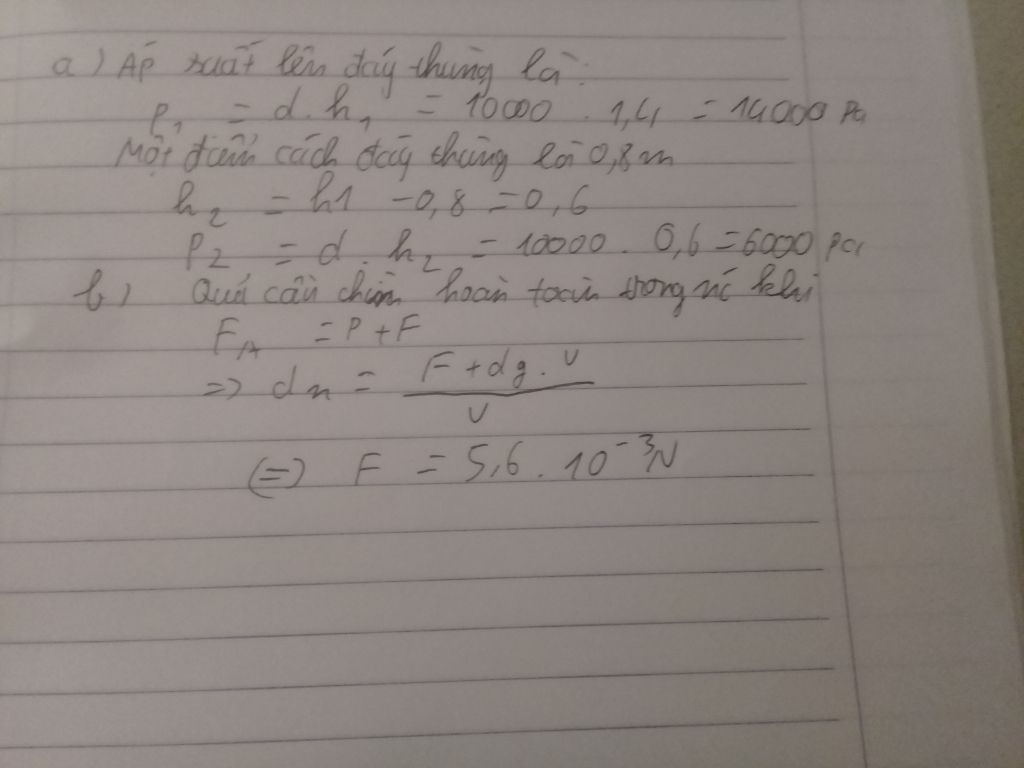 a) Áp suất lên đáy thùng là:
P₁ = d.h₁ = 10000 . 1,4 = 14000 Pa
Một điểm cách đáy thùng là 0,8m
h₂ = h1 - 0,8 = 0,6
P2 = d.h₂ = 10000 . 0,6 = 6000 Pa
b) Quả cầu chìm hoàn toàn trong nc khi
F_A = P + F
=> dn = (F + dg.V) / V
(=) F = 5,6 . 10⁻³N